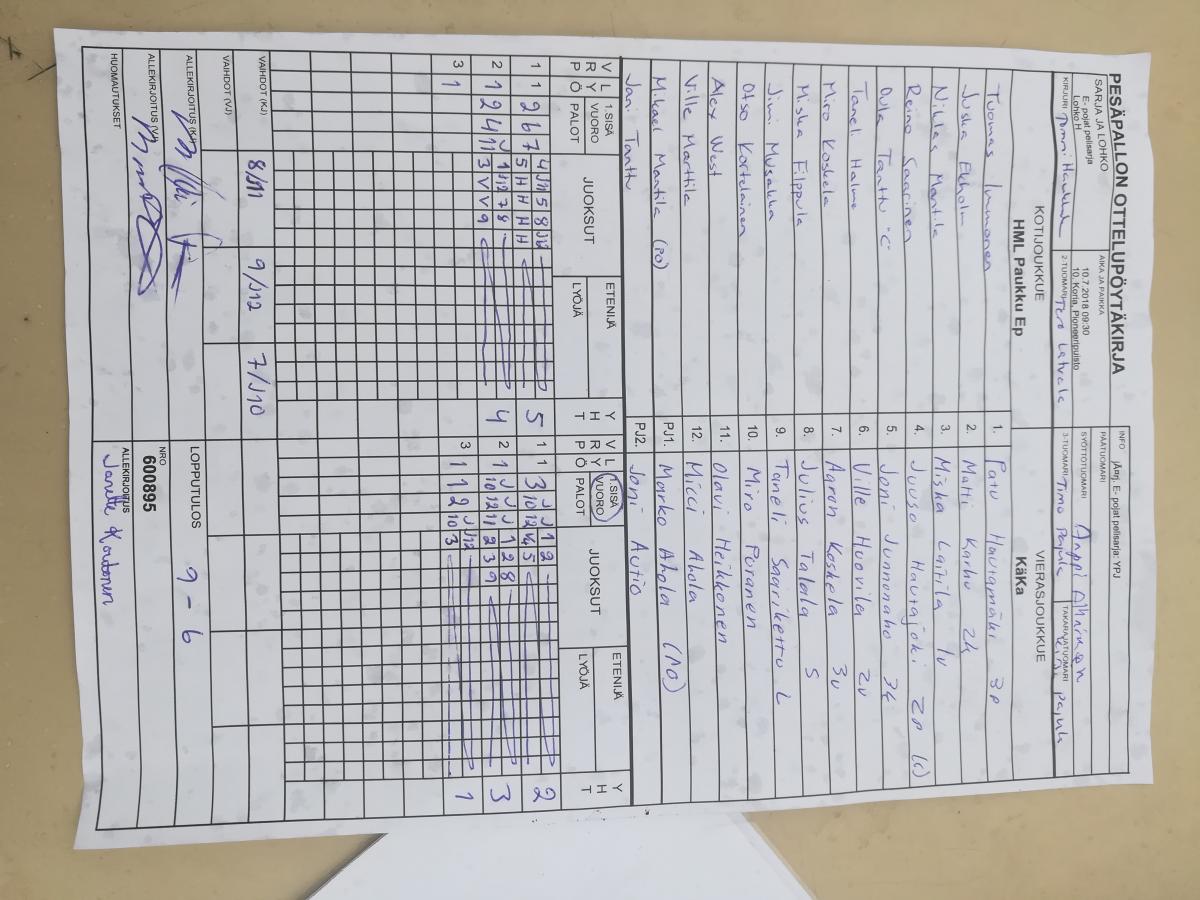 PESÄPALLON OTTELUPÖYTÄKIRJA
SARJA JA LOHKO
E- pojat pelisarja
Lohko H
AIKA JA PAIKKA
10.7.2018 09:30
10. Koria, Pioneeripuisto
INFO jÄ¤rj. E- pojat pelisarja: YPJ
PÄÄTUOMARI
SYÖTTÖTUOMARI
KIRJURI
2-TUOMARI Tero Latvala
3-TUOMARI Timo
TAKARAJATUOMARI
KOTIJOUKKUE
HML Paukku Ep
VIERASJOUKKUE
KäKa
Tuomas Immonen 1. Patu Hautamäki 3p
Juska Ekholm 2. Matti Karhu 2k
Niklas Mantila 3. Miska Laitila 1v
Reino Saarinen 4. Juuso Hautajoki 2p (c)
Outa Tanttu "C" 5. Joni Junnonaho 3k
Taneli Halme 6. Ville Huovila 2v
Miro Koskela 7. Aaron Koskela 3v
Miska Filppula 8. Julius Talala S
Jimi Musakka 9. Taneli Saariketto L
Otso Kortelainen 10. Miro Puranen
Alex West 11. Olavi Heikkonen
Ville Marttila 12. Micci Ahola
Mikael Mantila (PO) PJ1. Marko Ahola (PO)
Jani Tanttu PJ2. Joni Autio
V R P L Y Ö 1.SISÄ VUORO PALOT JUOKSUT ETENIJÄ LYÖJÄ Y H T
V R P L Y Ö 1.SISÄ VUORO PALOT JUOKSUT ETENIJÄ LYÖJÄ Y H T
1 1 2 6 7 4 J11 5 8 J12 5
5 H H H H
1 1 3 10 12 1 2 2
2 1 2 4 11 1 J12 7 8 4
3 V V 9
2 1 10 12 11 1 2 8 3
2 3 9
3 1
3 1 1 2 10 J12 1
3
VAIHDOT (KJ) 8/J11 9/J12 7/J10
VAIHDOT (VJ)
LOPPUTULOS 9 - 6
ALLEKIRJOITUS (KJ)
ALLEKIRJOITUS (VJ)
NRO
600895
HUOMAUTUKSET
ALLEKIRJOITUS
Janette Kontonen